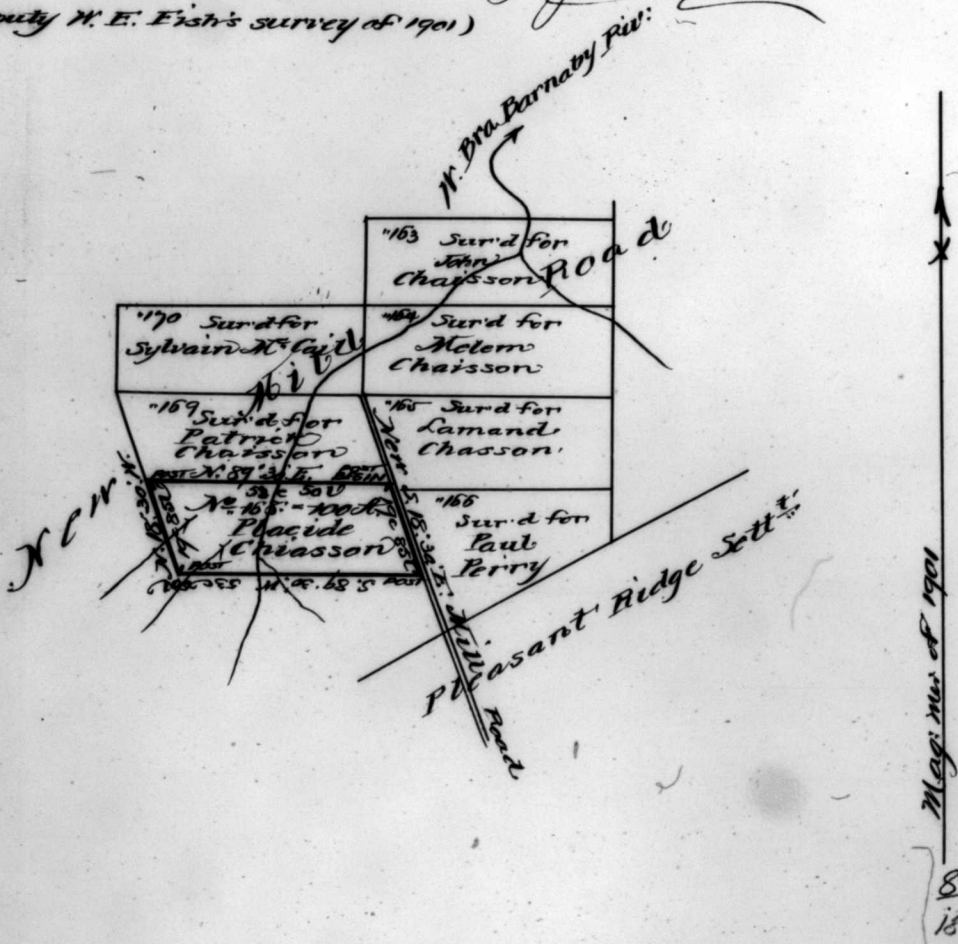 puty W. E. Fish's survey of 1901)
W. Bra. Barnaby Riv:
"163 Sur'd for
John
Chaisson
Road
"170 Sur'd for
Sylvain Mc Caill
"164 Sur'd for
Melem
Chaisson
Mill
"169
Sur'd for
Patrick
Chaisson
"165 Sur'd for
Lamand
Chasson
New
POST N. 89° 30' E. POST
BEGIN
53c 50l
No 168 = 100 A.
Placide
Chiasson
"166
Sur'd for
Paul
Perry
POST S. 89° 30' W. POST
New S. 18° 30' E. Mill Road
Pleasant Ridge Settt
Mag: mer. of 1901
8